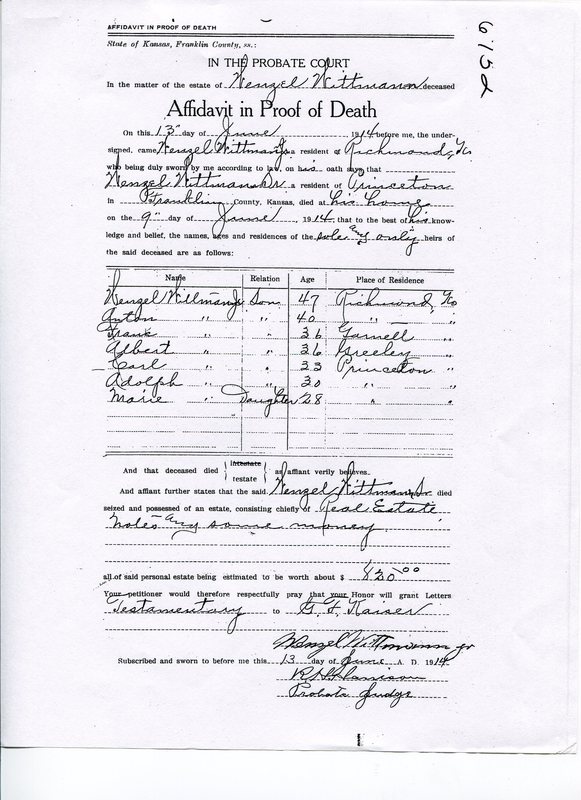 AFFIDAVIT IN PROOF OF DEATH
6152
State of Kansas, Franklin County, ss.:
IN THE PROBATE COURT
In the matter of the estate of Wenzel Wittmann deceased
Affidavit in Proof of Death
On this 13" day of June 1914 before me, the under-
signed, came Wenzel Wittman Jr a resident of Richmond, Ks
who being duly sworn by me according to law, on his oath says that
Wenzel Wittman Sr a resident of Princeton
in Franklin County, Kansas, died at his home
on the 9" day of June, 1914, that to the best of his know-
ledge and belief, the names, ages and residences of the sole and only heirs of
the said deceased are as follows:
Name Relation Age Place of Residence
Wenzel Wittman Jr Son 47 Richmond, Ks
Anton " " 40 " "
Frank " " 36 Garnett "
Albert " " 36 Greeley "
Carl " " 33 Princeton "
Adolph " " 30 " "
Marie " Daughter 28 " "
And that deceased died intestate testate as affiant verily believes.
And affiant further states that the said Wenzel Wittman Sr died
seized and possessed of an estate, consisting chiefly of Real Estate
Notes and some money
all of said personal estate being estimated to be worth about $
Your petitioner would therefore respectfully pray that your Honor will grant Letters
Testamentary to G. F. Kaiser
Wenzel Wittmann Jr
Subscribed and sworn to before me this 13 day of June A. D. 1914
Harrison
Probate Judge